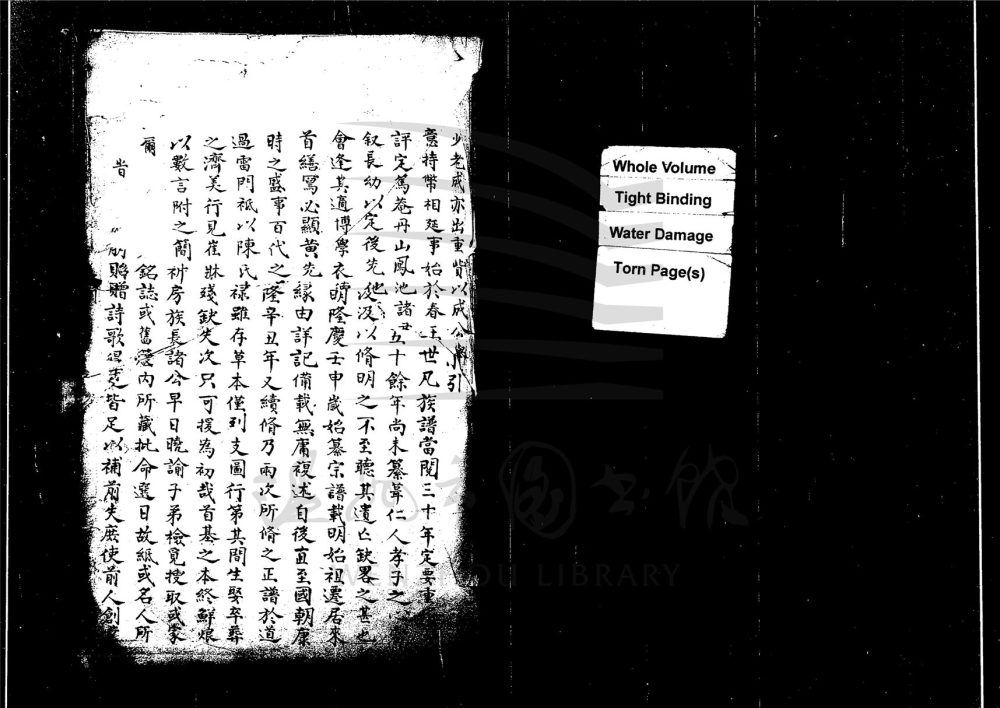 少老咸亦出重貲以成公舉小引
意持幣相延事始於春王世凡族譜當閱三十年定要重
評定篤菴丹山鳳池諸 五十餘年尚未纂葺仁人孝子之
叙長幼以定後先 汲汲以脩明之不至聽其遺亡缺畧之甚也
會逢其適博學衣 隆慶壬申歲始纂宗譜載明始祖遷居來
首繕寫必顯黄先緣由詳記備載無庸複述自後直至國朝康
時之盛事百代之隆辛丑年又續脩乃兩次所脩之正譜於道
過雷門祗以陳氏 雖存草本僅列支圖行第其間生娶卒葬
之濟美行見崔 殘缺失次只可援為初哉首基之本終鮮
以數言附之簡 房族長諸公早日曉諭子弟檢覓搜取或家
爾 銘誌或舊 內所藏批命選日故紙或名人所
旹 贈詩歌 皆足以補前失庶使前人創
Whole Volume
Tight Binding
Water Damage
Torn Page(s)
溫州市圖書館
WENZHOU LIBRARY